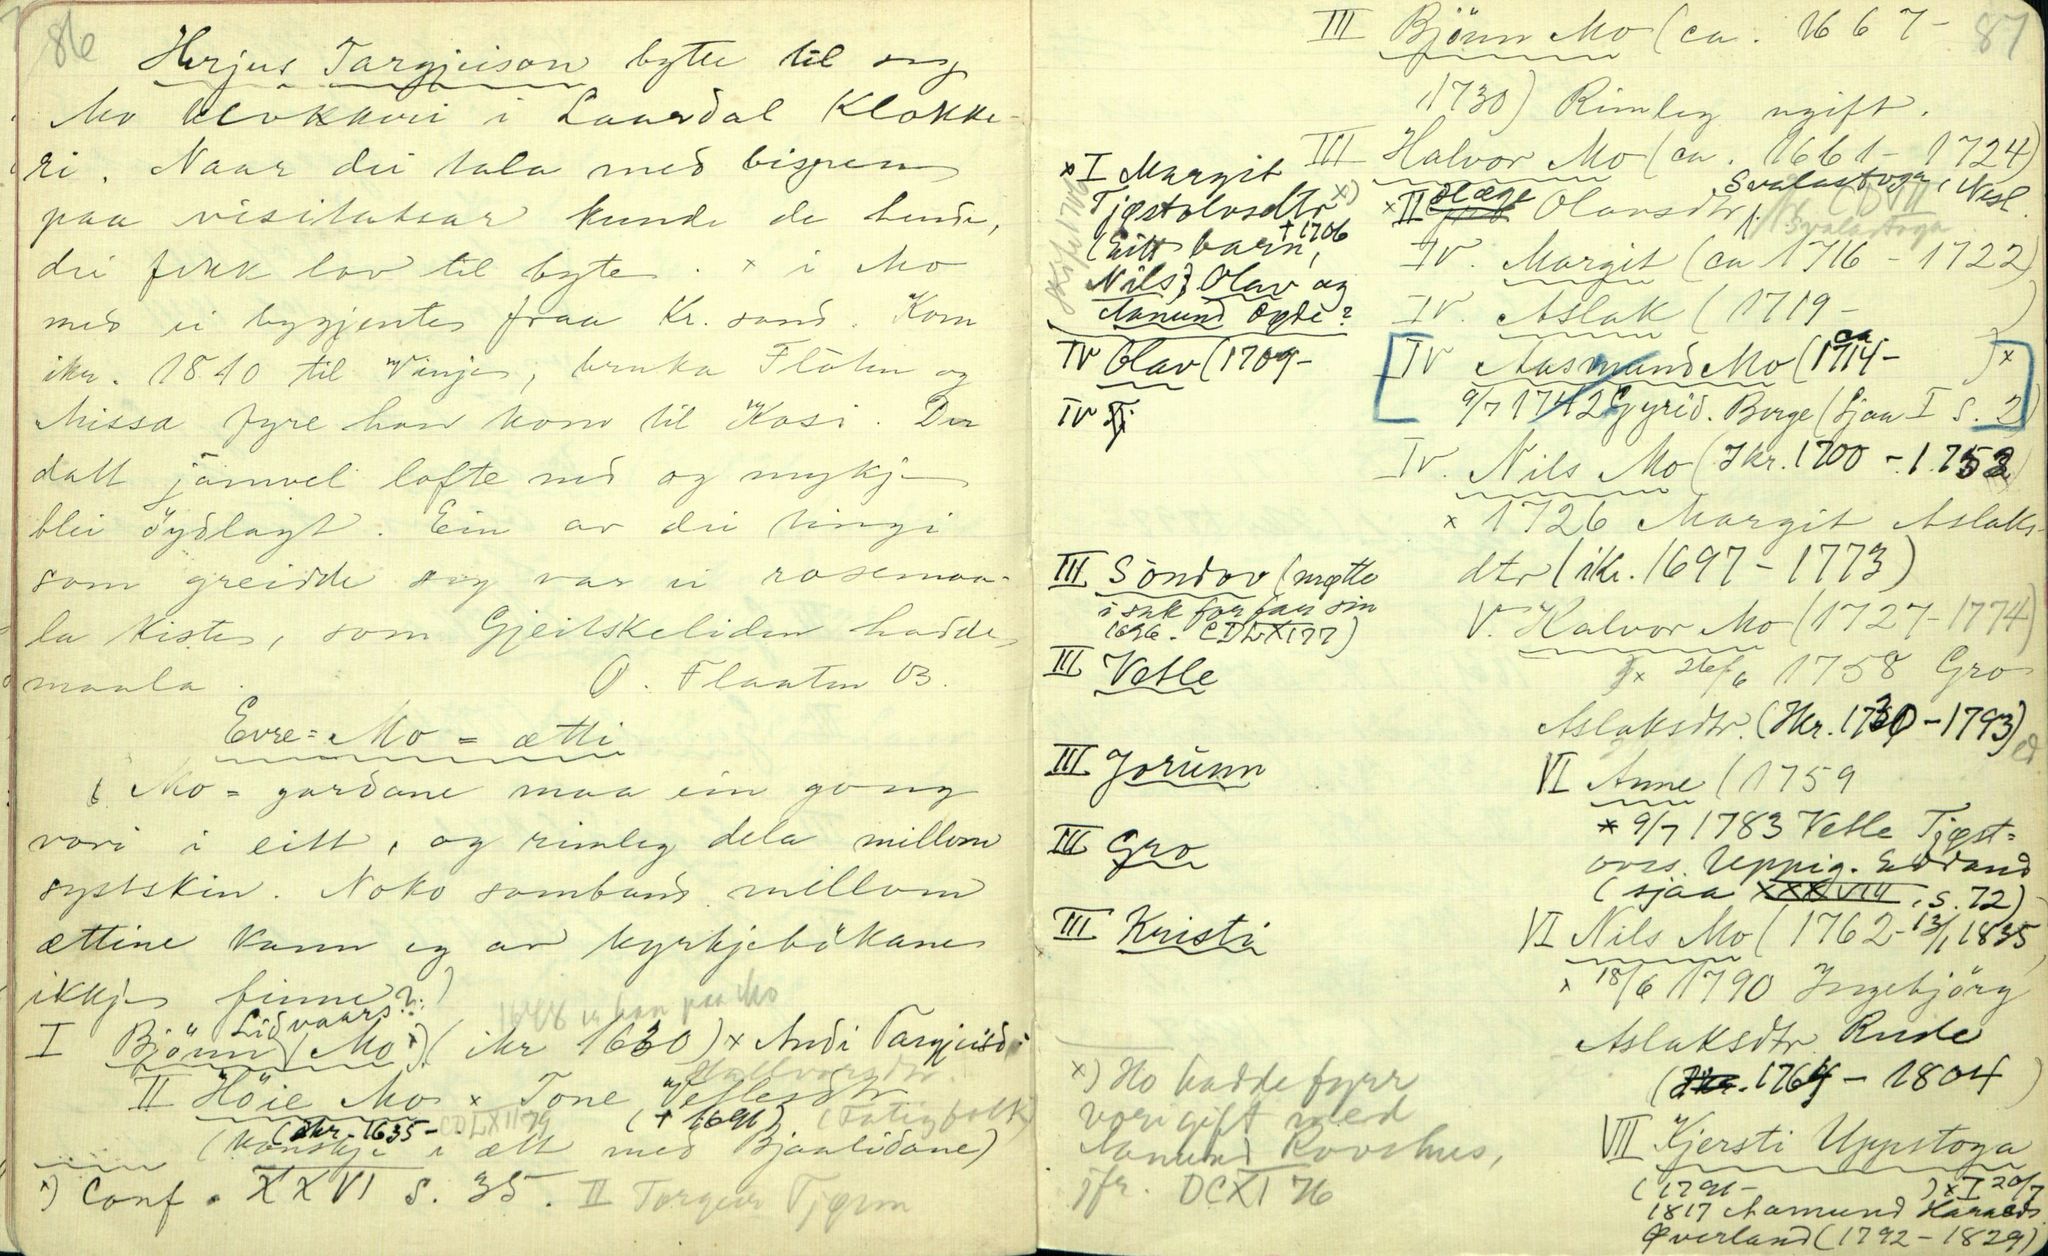 86
Herjus Targjeison bytte til seg
Mo klokkeri i Laardal Klokke-
ri. Naar dei tala med bispen
paa visitatsar kunde de hende,
dei fekk lov til byte. × i Mo
med ei bygjente fraa Kr. sand. Kom
ikr. 1840 til Vinje, bruka Flóten og
Missa fyre han kom til Kosi. Der
datt jamvel lofte ned og mykje
blei öydlagt. Ein av dei tingi
som greidde seg var ei rosemaa-
la kiste, som Gjeitskeliden hadde
maala. O. Flaaten 03.
Evre = Mo = ætti
i Mo = gardane maa ein gong
vori i eitt, og rimleg dela millom
systskin. Noko samband millom
ættine kann eg av kyrkjebökane
ikkje finne?:)
1648 er han paa Mo
Lidvaars?:
I Bjönn Mo ×) (ikr 1630) × Andi Targjeisd.
Hallvorsdtr
II Höie Mo × Tone Vetlesdtr
(ikr. 1635- CDLXII 79 († 1691) (Fatigfolk)
(kanskje i ætt med Bjaalidane)
×) Conf. XXVI s. 35. II Torgeir Tjønn
87
III Bjönn Mo (ca. 1667-
1730) Rimleg ugift.
III Halvor Mo (ca. 1661 - 1724)
× I Margit
Tjøstolvsdtr ×)
† 1706
(Eitt barn,
Nils) Olav og
Aamund Øyde?
Skifte 1706
× II Olavsdtr Svalastoga, Nesl.
CDVII
Svalastoga
IV. Margit (ca 1716 - 1722)
IV. Aslak (1719 - )
IV Olav (1709-
IV Aasmund Mo (ca 1714- )×
9/7 1742 Gyrid. Berge (sjaa I s. 2)
IV
IV. Nils Mo (Ikr. 1700 - 1753)
× 1726 Margit Aslaks-
dtr (ikr. 1697 - 1773)
III Söndov (møtte
i sak for far sin
1696. CDLXI 77)
V. Halvor Mo (1727-1774)
× 26/6 1758 Gro
Aslaksdtr. (Ikr. 1730 - 1793)
III Vetle
III Jorunn
VI Anne (1759
× 9/7 1783 Vetle Tjøst=
ovs. Uppig. Edland
(sjaa XXXVIII, s. 72)
III Gro
III Kristi
VI Nils Mo (1762 - 13/1 1835)
× 18/6 1790 Ingebjörg
Aslaksdtr Rude
(Ikr. 1764 - 1804)
×) Ho hadde fyrr
vori gift med
Aamund Rooshus,
jfr. DCXI 76
VII Kjersti Uppstoga
(1791- ) × I 20/7
1817 Aamund Haraldss.
Øverland (1792 - 1829)